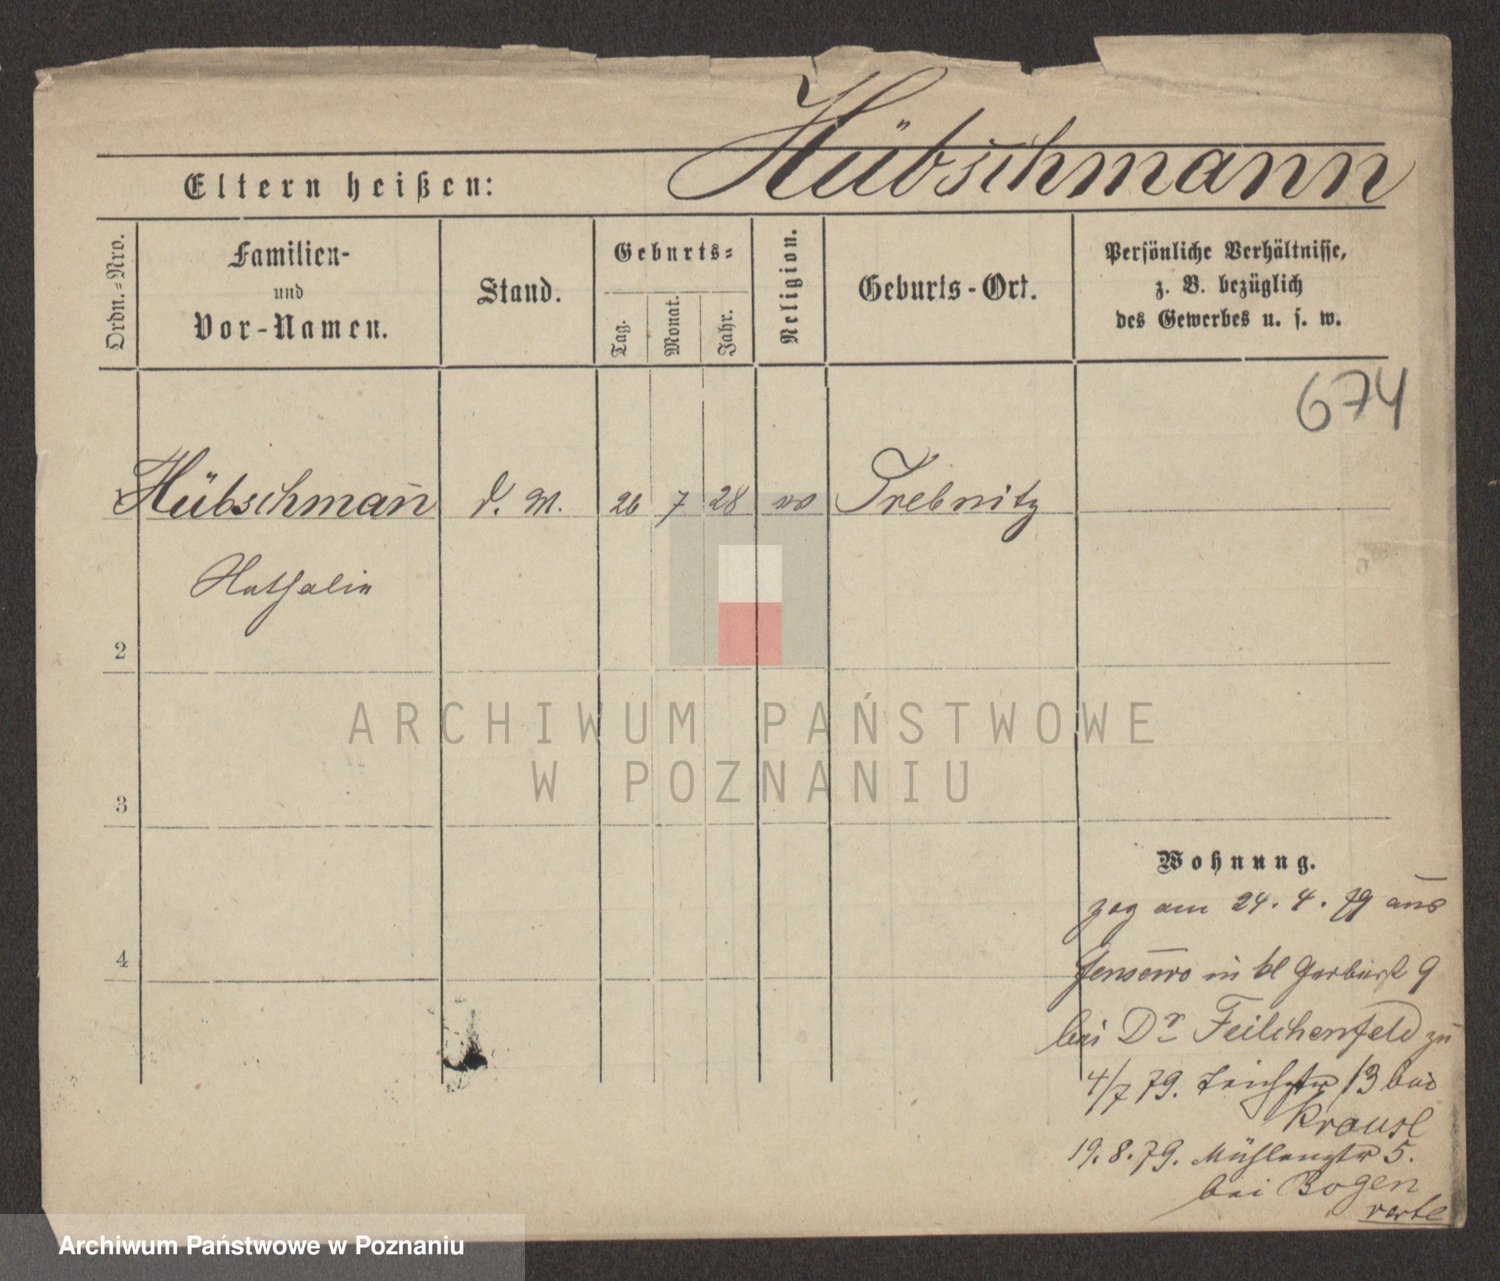 Hübschmann
Eltern heißen:
Ordn.-Nro.
Familien-
und
Vor-Namen.
Stand.
Geburts-
Tag.
Monat.
Jahr.
Religion.
Geburts-Ort.
Persönliche Verhältnisse,
z. B. bezüglich
des Gewerbes u. s. w.
674
Hübschman̄ d. M. 26 7 28 Trebnitz
Nathalie
2
3
4
ARCHIWUM PAŃSTWOWE
W POZNANIU
Wohnung.
zog am 24. 4. 79 aus
in kl Gerberst 9
bei Dr Feilchenfeld zu
4/7 79. Teichstr 13 bei
Krause
19. 8. 79. Mühlenstr 5.
bei Bogen
verte
Archiwum Państwowe w Poznaniu